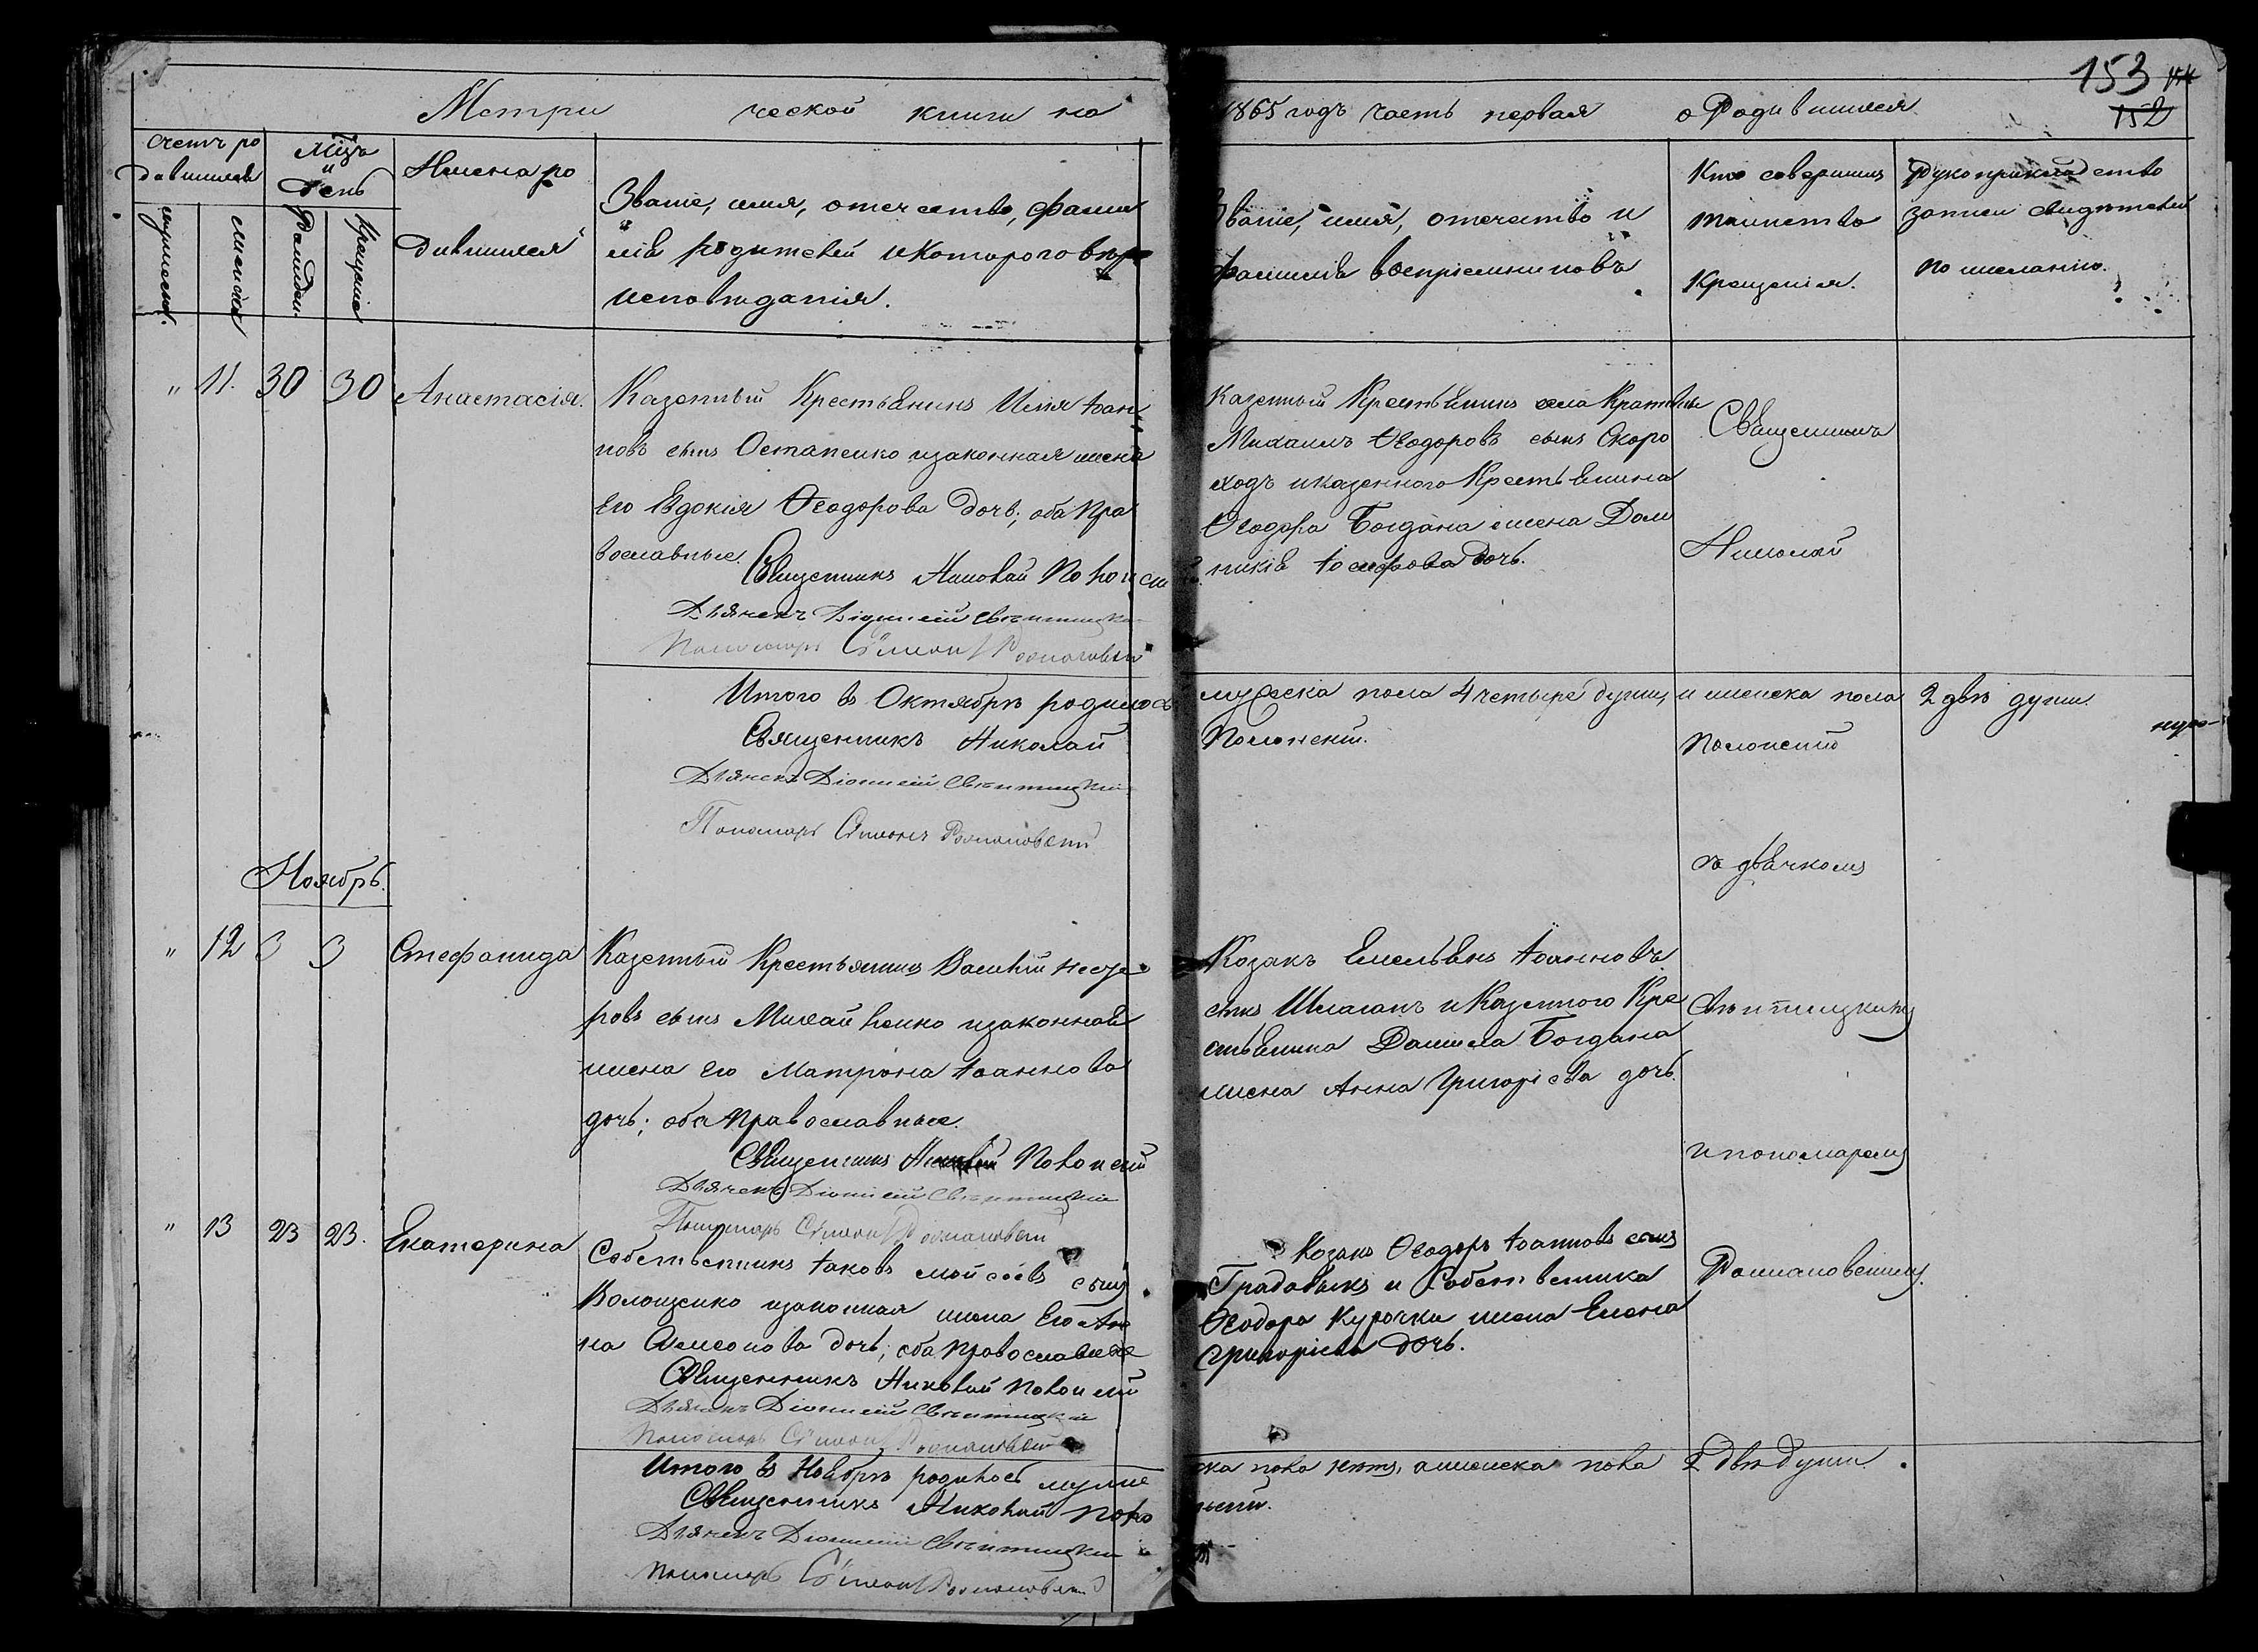 153
152
Метри ческой книги на 1865 годъ часть первая о Родившихся
Счетъ ро
дившихся
Мцъ
и
день
Имена ро
дившихся
мужеска.
женска
Рожден.
Крещенія
Званіе, имя, отечество, фами
лія родителей и котораго вѣро
исповѣданія.
Званіе, имя, отечество и
фамилія воспріемниковъ
Кто совершилъ
таинство
Крещенія.
Рукоприкладство
записи свидѣтелей
по желанію.
" 11. 30 30 Анастасія.
Казенный Крестьянинъ Илія Іоан
новъ сынъ Остапенко и законная жена
его Евдокія Ѳеодорова дочь; оба пра
вославные.
Священникъ Николай Полонскій
Дьячекъ Діонисій Свѣнтицкій
Пономарь Симеонъ Романовскій
Казенный Крестьянинъ села
Михаилъ Ѳеодоровъ сынъ Скоро
ходъ и казенного Крестьянина
Ѳеодора Богдана жена Дом
никія Іосифова дочь.
Священникъ
Николай
Итого въ Октябрѣ родилось мужеска пола 4 четыре души, и женска пола 2 двѣ души.
Священникъ Николай Полонскій.
Дьячекъ Діонисій Свѣнтицкій
Пономарь Симеонъ Романовскій
Полонскій
съ дьячкомъ
Ноябрь.
" 12 3 3 Стефанида
Казенный Крестьянинъ Василій
ровъ сынъ Михайленко и законная
жена его Матрона Іоаннова
дочь; оба православные.
Священникъ Николай Полонскій
Дьячекъ Діонисій Свѣнтицкій
Пономарь Симеонъ Романовскій
Козакъ Емельянъ Іоанновъ
сынъ и Казенного Кре
стьянина Даніила Богдана
жена Анна Григоріева дочь.
Свѣнтицкимъ
и пономаремъ
" 13 23 23. Екатерина
Собственникъ Іаковъ Мойсеевъ сынъ
Волощенко и законная жена его Ан
на Симеонова дочь; оба православные
Священникъ Николай Полонскій
Дьячекъ Діонисій Свѣнтицкій
Пономарь Симеонъ Романовскій
Козакъ Ѳеодоръ Іоанновъ сынъ
и Собственника
Ѳеодора Курочки жена Елена
Григоріева дочь.
Романовскимъ.
Итого въ Ноябрѣ родилось мужеска пола нѣтъ, а женска пола 2 двѣ души.
Священникъ Николай Полонскій.
Дьячекъ Діонисій Свѣнтицкій
Пономарь Симеонъ Романовскій